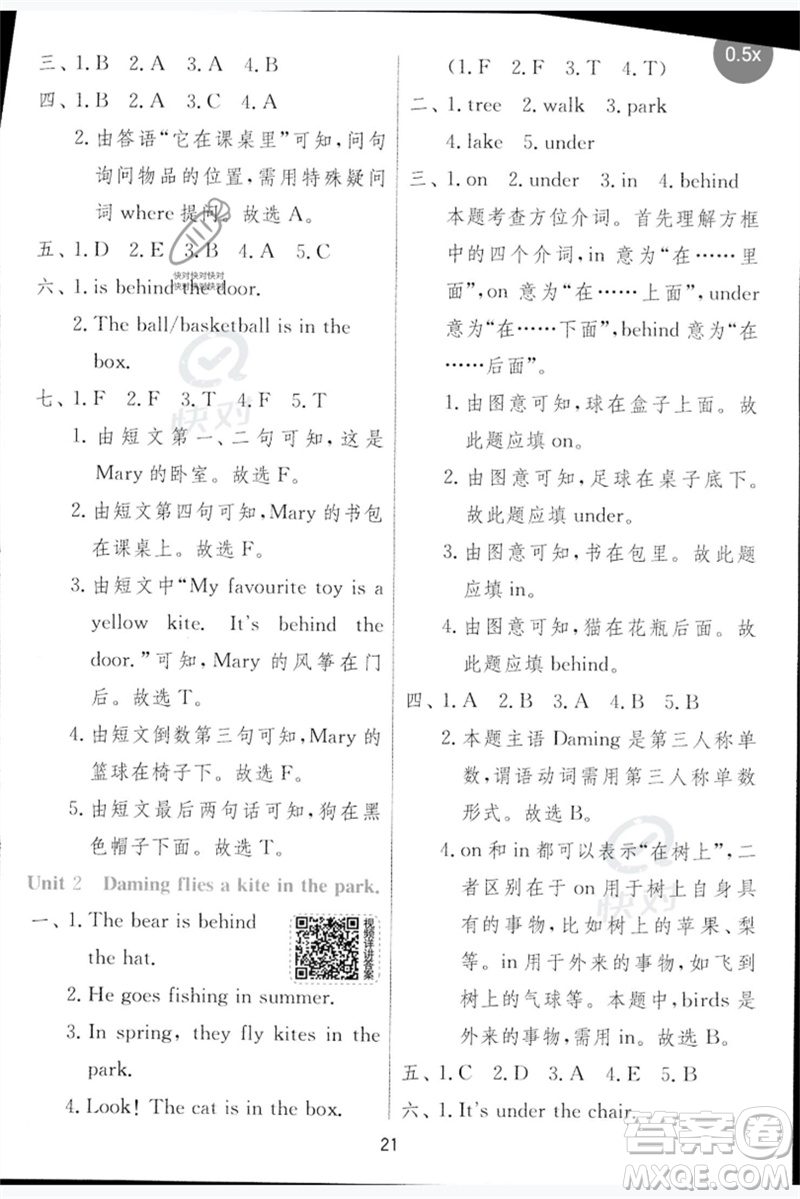 三、1. B 2. A 3. A 4. B
四、1. B 2. A 3. C 4. A
2. 由答语“它在课桌里”可知，问句
询问物品的位置，需用特殊疑问
词 where 提问。故选 A。
五、1. D 2. E 3. B 4. A 5. C
六、1. is behind the door.
2. The ball/basketball is in the
box.
七、1. F 2. F 3. T 4. F 5. T
1. 由短文第一、二句可知，这是
Mary 的卧室。故选 F。
2. 由短文第四句可知，Mary 的书包
在课桌上。故选 F。
3. 由短文中“My favourite toy is a
yellow kite. It's behind the
door.”可知，Mary 的风筝在门
后。故选 T。
4. 由短文倒数第三句可知，Mary 的
篮球在椅子下。故选 F。
5. 由短文最后两句话可知，狗在黑
色帽子下面。故选 T。
Unit 2 Daming flies a kite in the park.
一、1. The bear is behind
the hat.
2. He goes fishing in summer.
3. In spring, they fly kites in the
park.
4. Look! The cat is in the box.
视频详讲答案
(1. F 2. F 3. F 4. T)
二、1. tree 2. walk 3. park
4. lake 5. under
三、1. on 2. under 3. in 4. behind
本题考查方位介词。首先理解方框
中的四个介词，in 意为“在……里
面”，on 意为“在……上面”，under
意为“在……下面”，behind 意为“在
……后面”。
1. 由图意可知，球在盒子上面。故
此题应填 on。
2. 由图意可知，足球在桌子底下。
故此题应填 under。
3. 由图意可知，书在包里。故此题
应填 in。
4. 由图意可知，猫在花瓶后面。故
此题应填 behind。
四、1. A 2. B 3. A 4. B 5. B
2. 本题主语 Daming 是第三人称单
数，谓语动词需用第三人称单数
形式。故选 B。
4. on 和 in 都可以表示“在树上”，二
者区别在于 on 用于树上自身具
有的事物，比如树上的苹果、梨
等。in 用于外来的事物，比如
树上的气球等。本题中，birds 是
外来的事物，需用 in。故选 B。
五、1. C 2. D 3. A 4. E 5. B
六、1. It's under the chair.
21
0.5x
快对快对快对
快对快对快对
快对
快对
答案卷
MXQE.COM